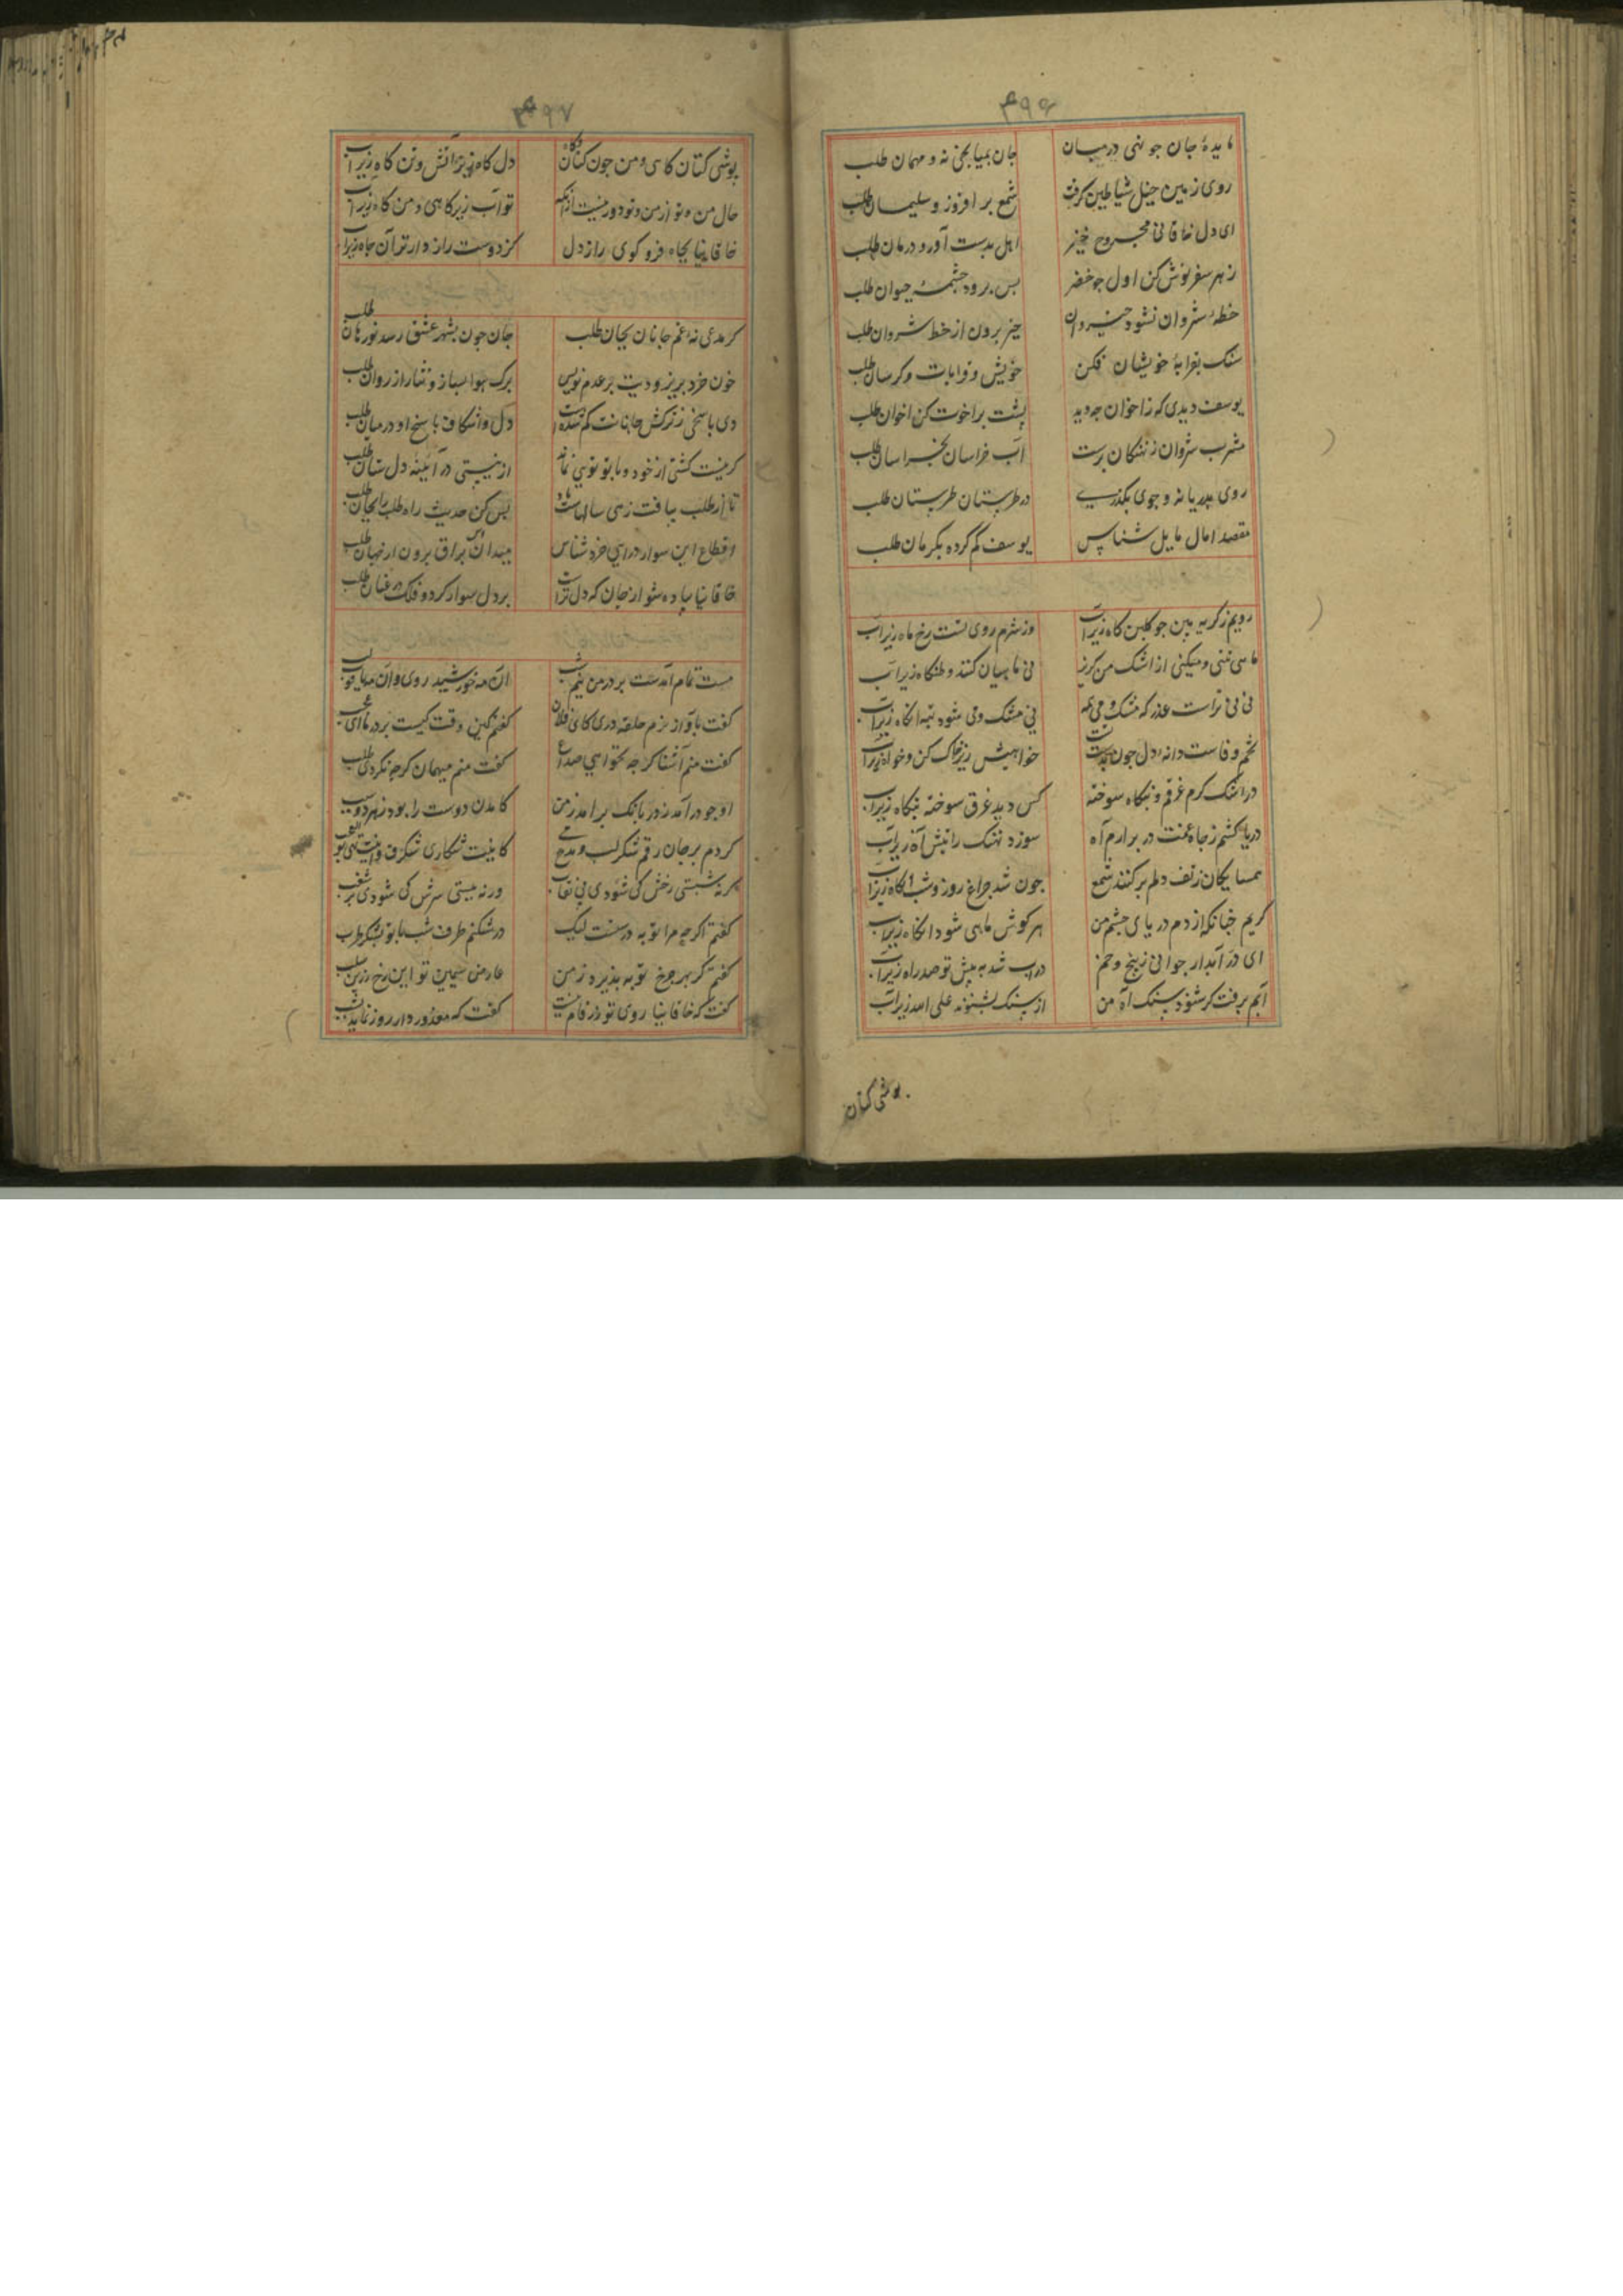 ۳۹۶
مایدهٔ جان چو نهی در میان جان بمیانجی نه و مهمان طلب
روی زمین خیل شیاطین کرفت شمع بر افروز و سلیمان طلب
ای دل خاقانی مجروح خیز اهل بدست آور و درمان طلب
زهر سفر نوش کن اول چو خضر پس برو و چشمهٔ حیوان طلب
خطهٔ شروان نشود خیروان خیز برون از خط شروان طلب
سنک بقرابهٔ خویشان فکن خویش و قرابات دکرسان طلب
یوسف دیدی که ز اخوان چه دید پشت بر اخوت کن اخوان طلب
مشرب شروان ز نهنکان پرست آب خراسان بخراسان طلب
روی بدریا نه و چون بکذری در طبرستان طربستان طلب
مقصد امال مایل شناس یوسف کم کرده بکرمان طلب
رویم ز کریه بین چو کلین کاه زیر آب وز شرم روی تست رخ ماه زیر آب
ماهی تنی و میکنی از اشک من کریز نی ماهیان کنند وطنکاه زیر آب
نی نی تراست عذر که مشک و می نی مشک و می شود تبه انکاه زیر آب
تخم وفاست دانهٔ دل چون بدست تست خواهیش زیر خاک کن و خواه زیر آب
در اشک کرم غرقم و بنکاه سوخته کس دید غرق سوخته بنکاه زیر آب
دریا کشم ز جاه غمت در برارم آه سوزد نهنک را تبش آه زیر آب
همسایکان ز تف دلم بر کنند شمع چون شد چراغ روز و شبانکاه زیر آب
کریم چنانکه از دم دریای چشم من هر کوش ماهی شود انکاه زیر آب
ای در آبدار جوانی ز پیچ و خم در آب شد به پیش تو صد راه زیر آب
آبم برفت کر شنود سنک آه من از سنک بشنو نه علی الله زیر آب
پوشی کتان
۳۹۷
پوشی کتان کاهی و من چون کتان و کاه دل کاه زیر آتش و تن کاه زیر آب
حال من و تو از من و تو دور نیست از انکه تو آب زیر کاهی و من کاه زیر آب
خاقانیا بچاه فرو کوی راز دل کز دوست راز دارتر آن چاه زیر آب
کر مدعی نهٔ غم جانان بجان طلب جان چون بشهر عشق رسد نورهان طلب
خون خرد بریز و دیت بر عدم نویس برک هوا بساز و نثار از روان طلب
دی یاسجی ز ترکش جانانت کم شدست دل واشکاف یاسج او در میان طلب
کر نیست کشتی از خود و با تو تویی نماند از نیستی در آینه دل نشان طلب
تا از طلب بیافت رهی سالهاست راه بس کن حدیث راه طلب را بجان طلب
اقطاع این سوار ورای خرد شناس میدان این براق برون از جهان طلب
خاقانیا پیاده شو از جان که دل تراست بر دل سوار کرد و فلک در عنان طلب
مست تمام آمدست بر در من نیم شب آن مه خورشید روی و آن مه یاقوت لب
کفت باواز نرم حلقهٔ در کای فلان کفتم کین وقت کیست بر در ما ای عجب
کفت منم آشنا کر چه نخواهی صداع کفت منم میهمان کرچه نکردی طلب
او چو درآمد ز در بانک برآمد ز من کامدن دوست را بود ز هر دو سبب
کردم بر جان رقم شکر لب و مدح می کاینت شکاری شکرف وینت شبی بوالعجب
کر نه شبستی رخش کی شودی بی نقاب ورنه بیستی سرش کی شودی پر شغب
کفتم اکر چه مرا توبه درستست لیک درشکنم طرف شب با تو بشکر طرب
کفتم کر بهر چرخ توبه پذیرد ز من عارض سیمین تو این رخ زرین سلب
کفت که خاقانیا روی تو زرفام نیست کفت که معذور دار روز نماید شب